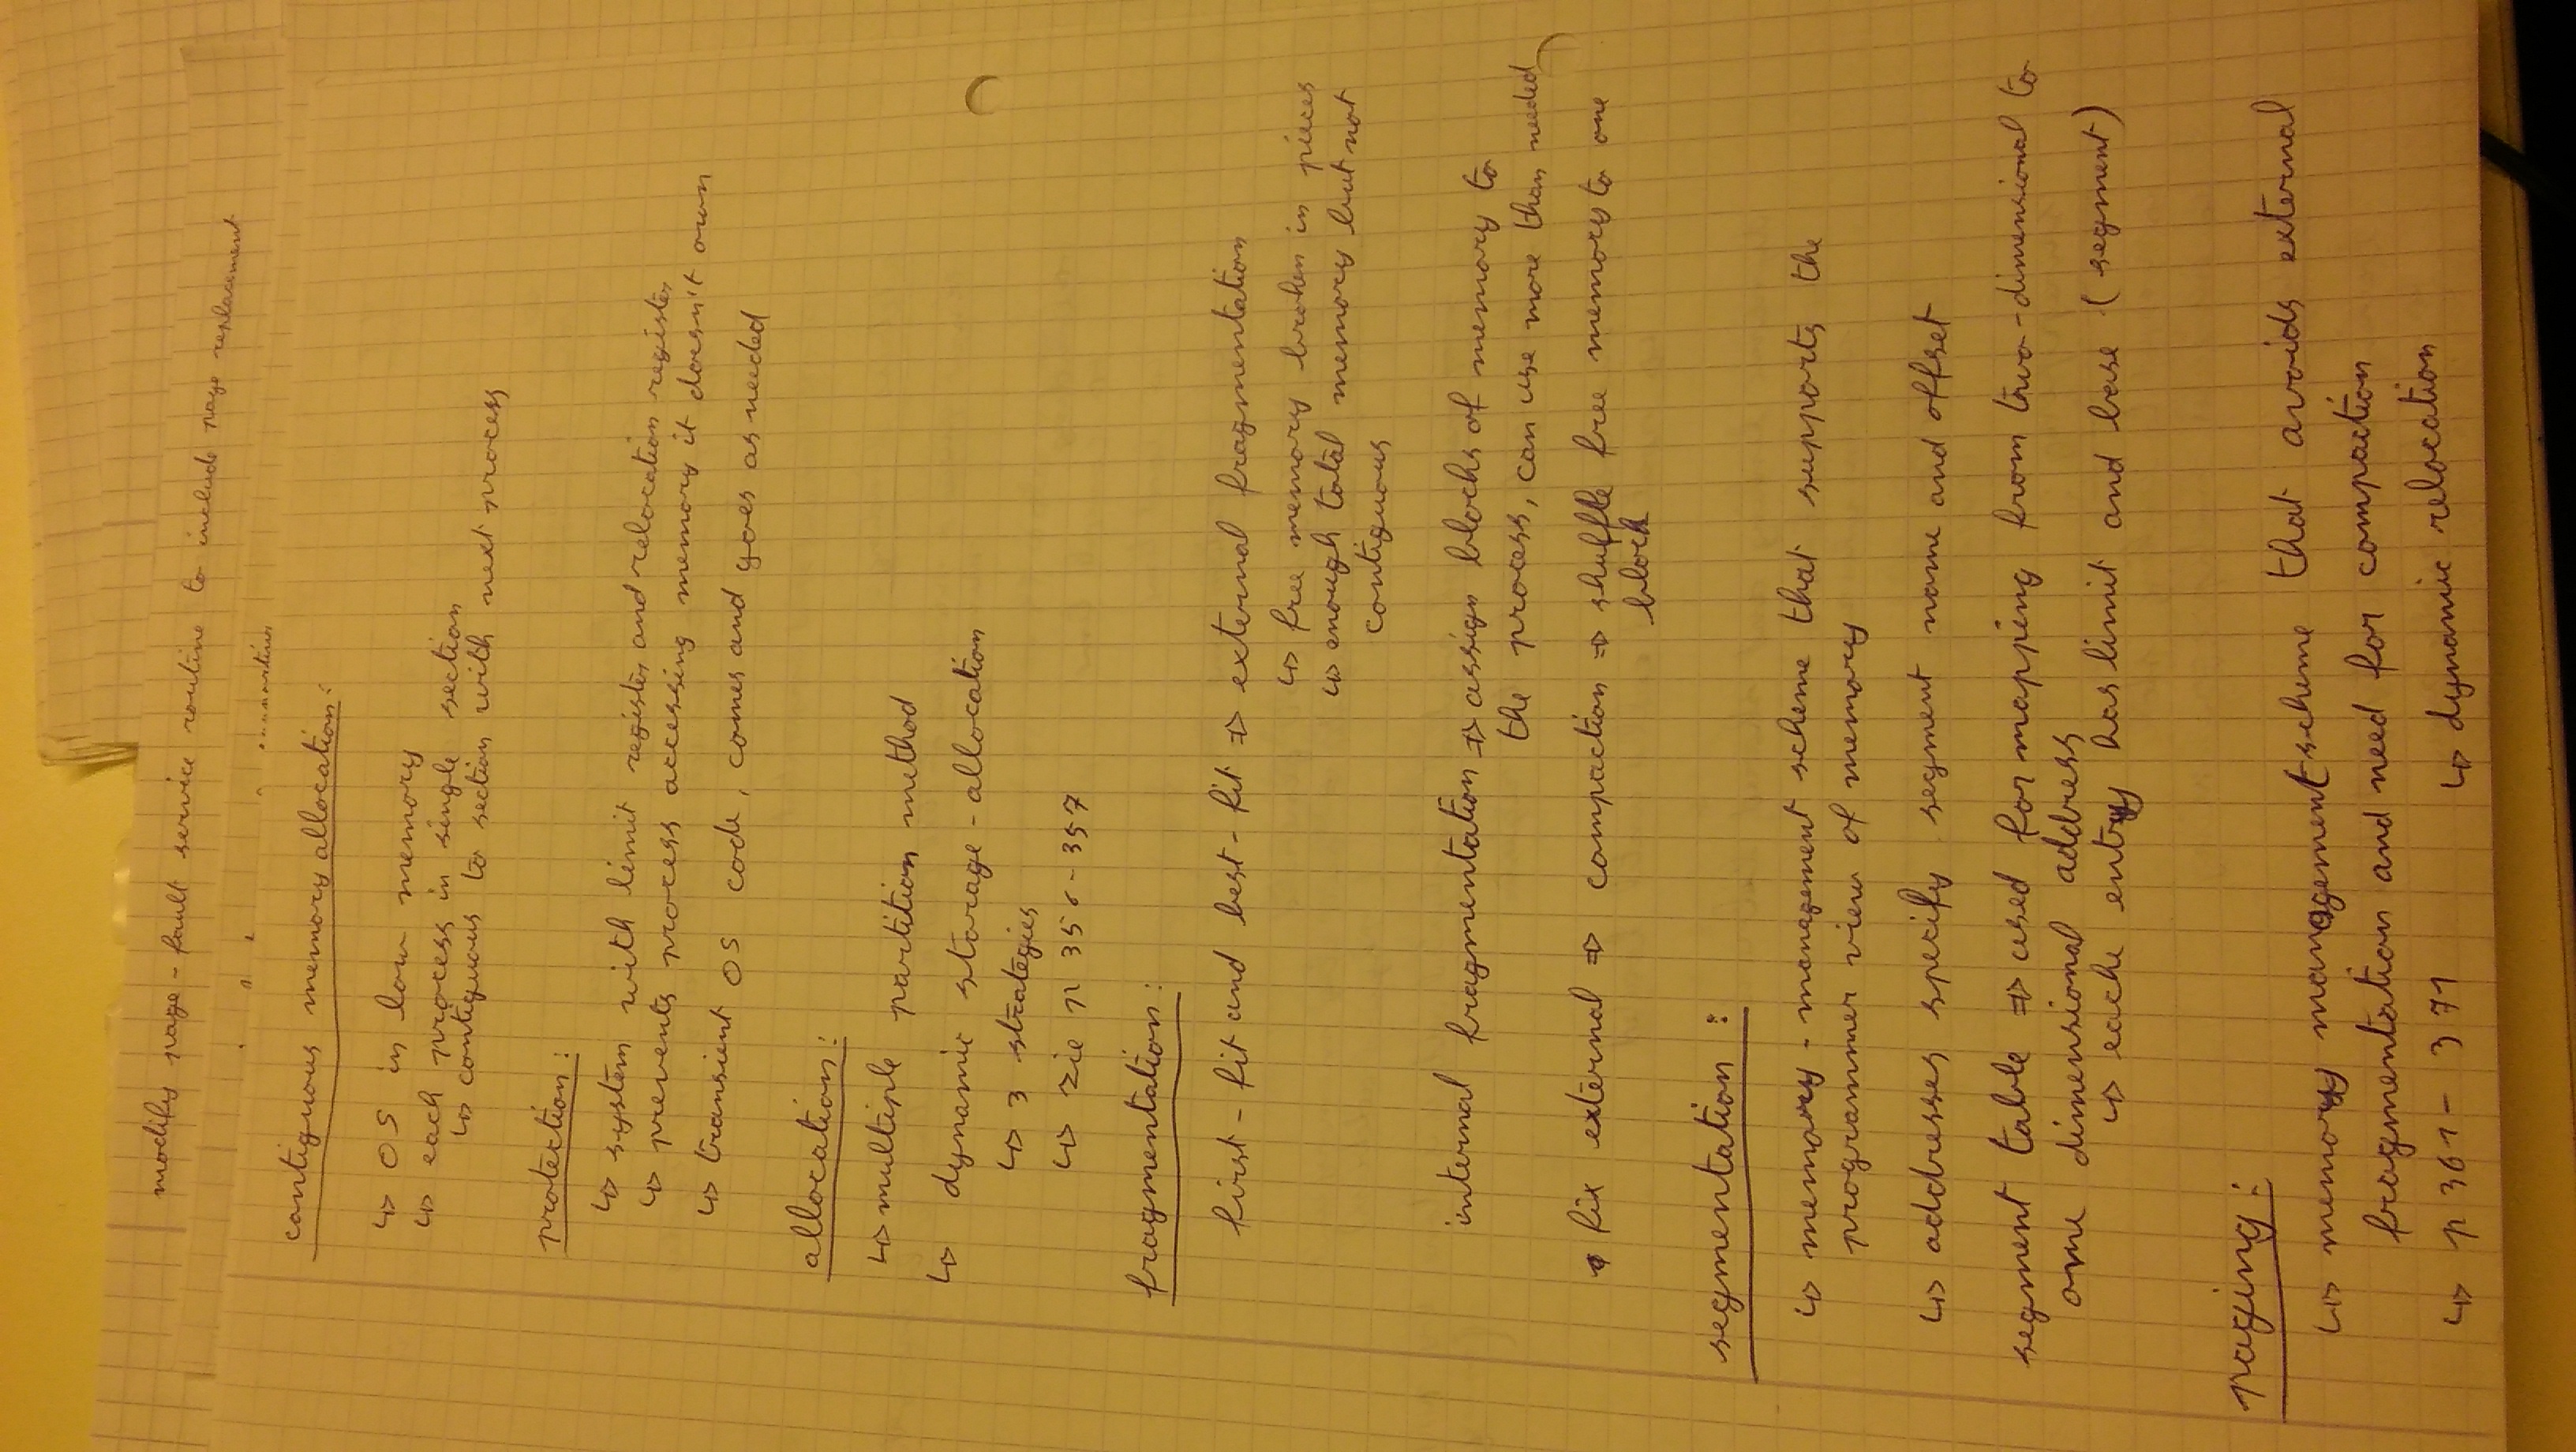 modify page - fault service routine to include page replacement
contiguous memory allocation:
↳ OS in low memory
↳ each process in single section
↳ contiguous to section with next process
protection:
↳ system with limit register and relocation register
↳ prevents process accessing memory it doesn't own
↳ transient OS code, comes and goes as needed
allocation:
↳ multiple partition method
↳ dynamic storage - allocation
↳ 3 strategies
↳ zie p 356 - 357
fragmentation:
first - fit and best - fit ⇒ external fragmentation
↳ free memory broken in pieces
↳ enough total memory but not
contiguous
internal fragmentation ⇒ assign blocks of memory to
the process, can use more than needed
• fix external ⇒ compaction ⇒ shuffle free memory to one
block
segmentation :
↳ memory - management scheme that supports the
programmer view of memory
↳ addresses specify segment name and offset
segment table ⇒ used for mapping from two - dimensional to
one dimensional address
↳ eache entry has limit and base (segment)
paging:
↳ memory management scheme that avoids external
fragmentation and need for compaction
↳ p 361 - 371 ↳ dynamic relocation